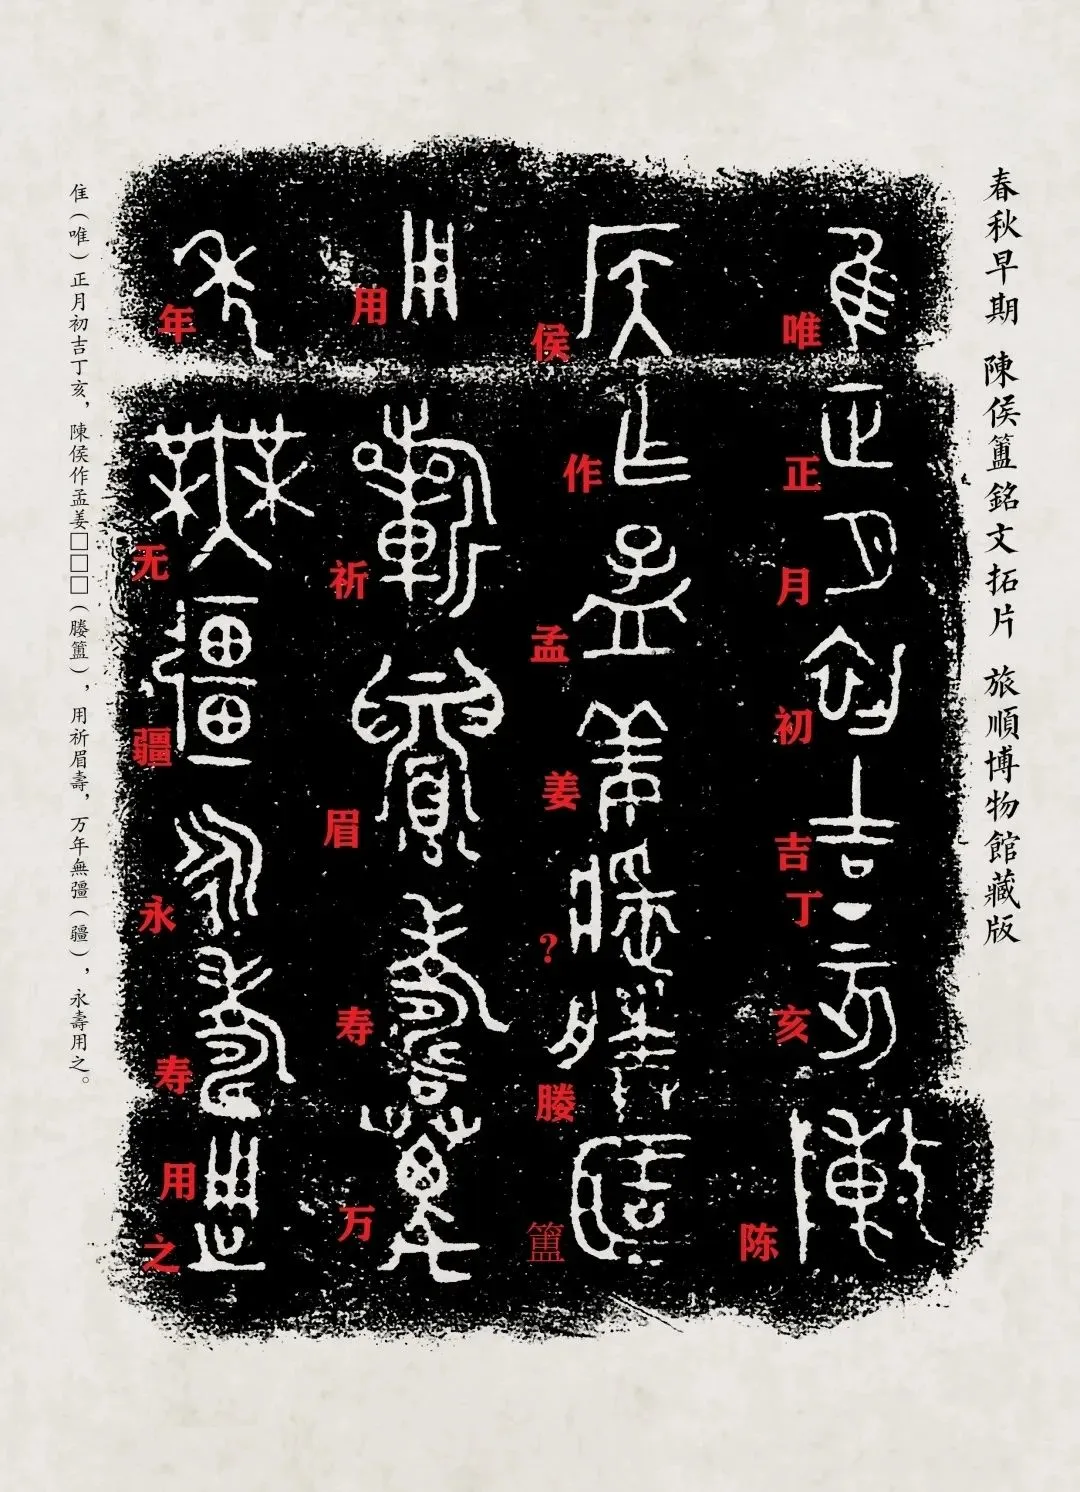 春秋早期 陳侯簠銘文拓片 旅順博物館藏版
唯正月初吉丁亥陈
侯作孟姜?媵簠
用祈眉寿万
年无疆永寿用之
隹（唯）正月初吉丁亥，陳侯作孟姜□□□（媵簠），用祈眉壽，万年無彊（疆），永壽用之。